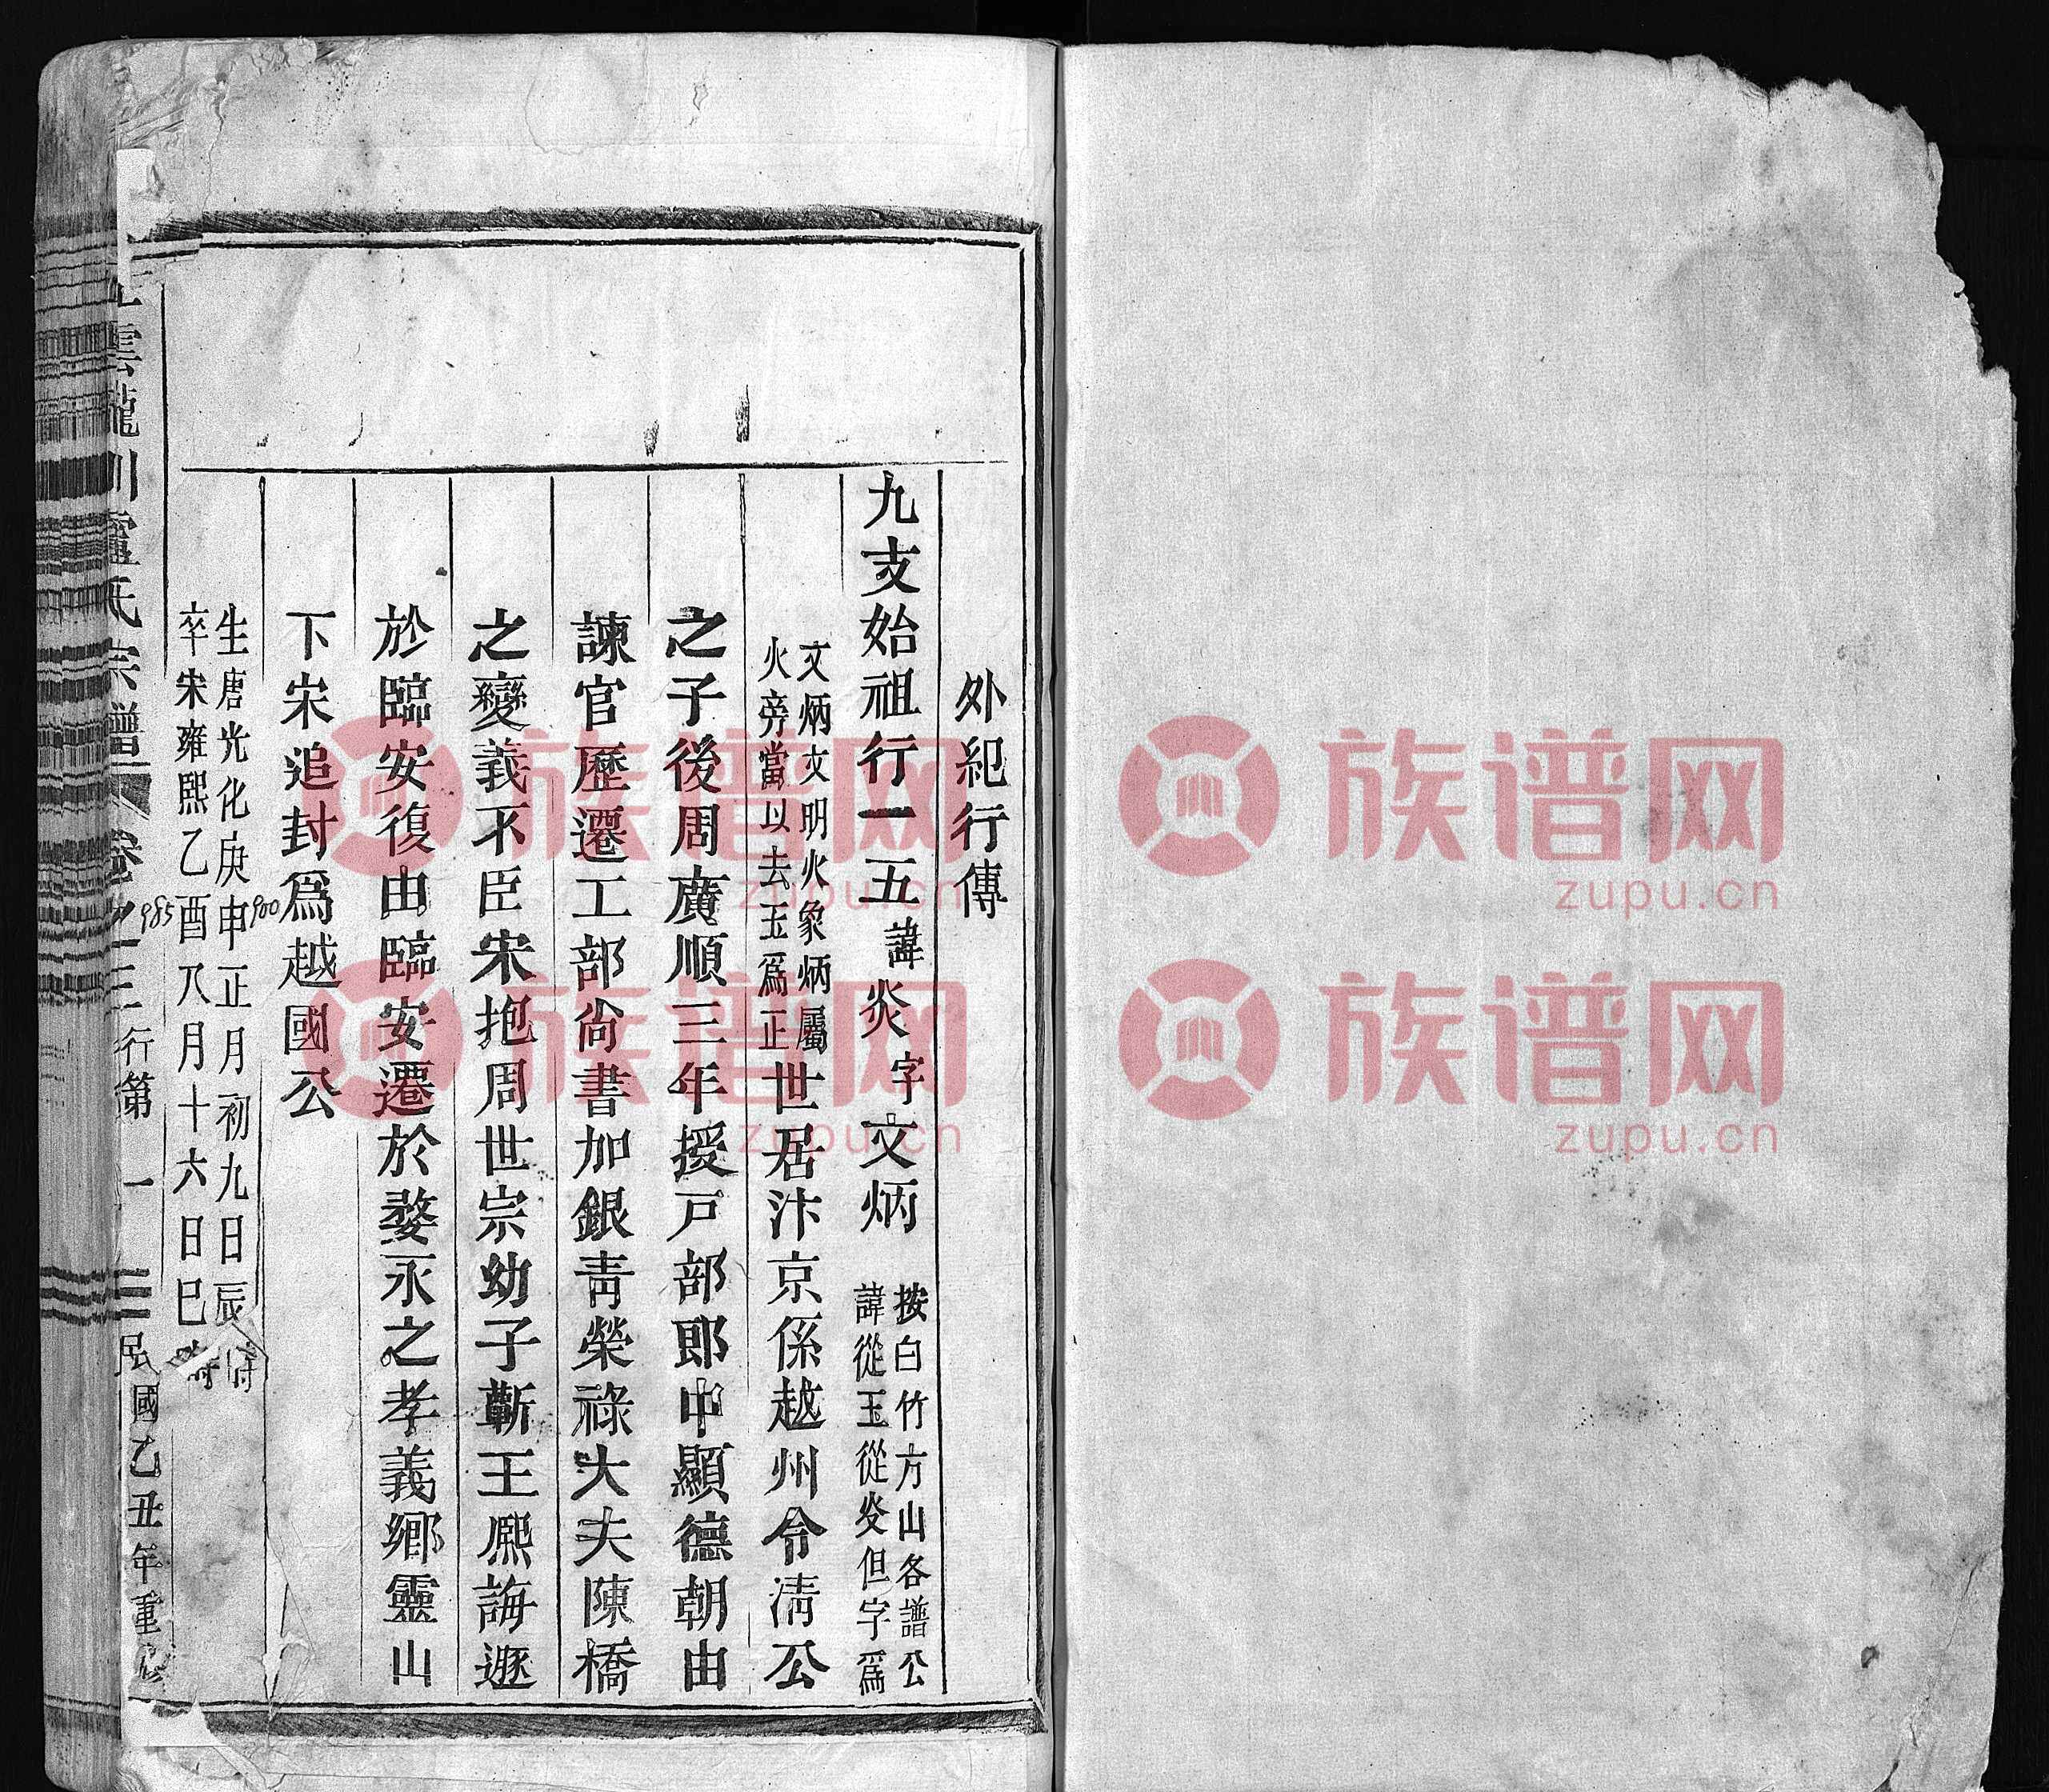 外紀行傳
九支始祖行一五諱炎字文炳按白竹方山各譜公
諱從玉從炎但字為
文炳文明火象炳屬
火旁當以去玉為正世居汴京係越州令淸公
之子後周廣順三年授戸部郎中顯德朝由
諫官歷遷工部尙書加銀靑榮祿大夫陳橋
之變義不臣宋抱周世宗幼子蘄王熙誨遯
於臨安復由臨安遷於婺永之孝義鄉靈山
下宋追封爲越國公
生唐光化庚申正月初九日辰時
900
卒宋雍熙乙酉八月十六日巳時
985
雲龍川盧氏宗譜 卷之三 行第 一 民國乙丑年重修
族谱网
zupu.cn
族谱网
zupu.cn
族谱网
zupu.cn
族谱网
zupu.cn